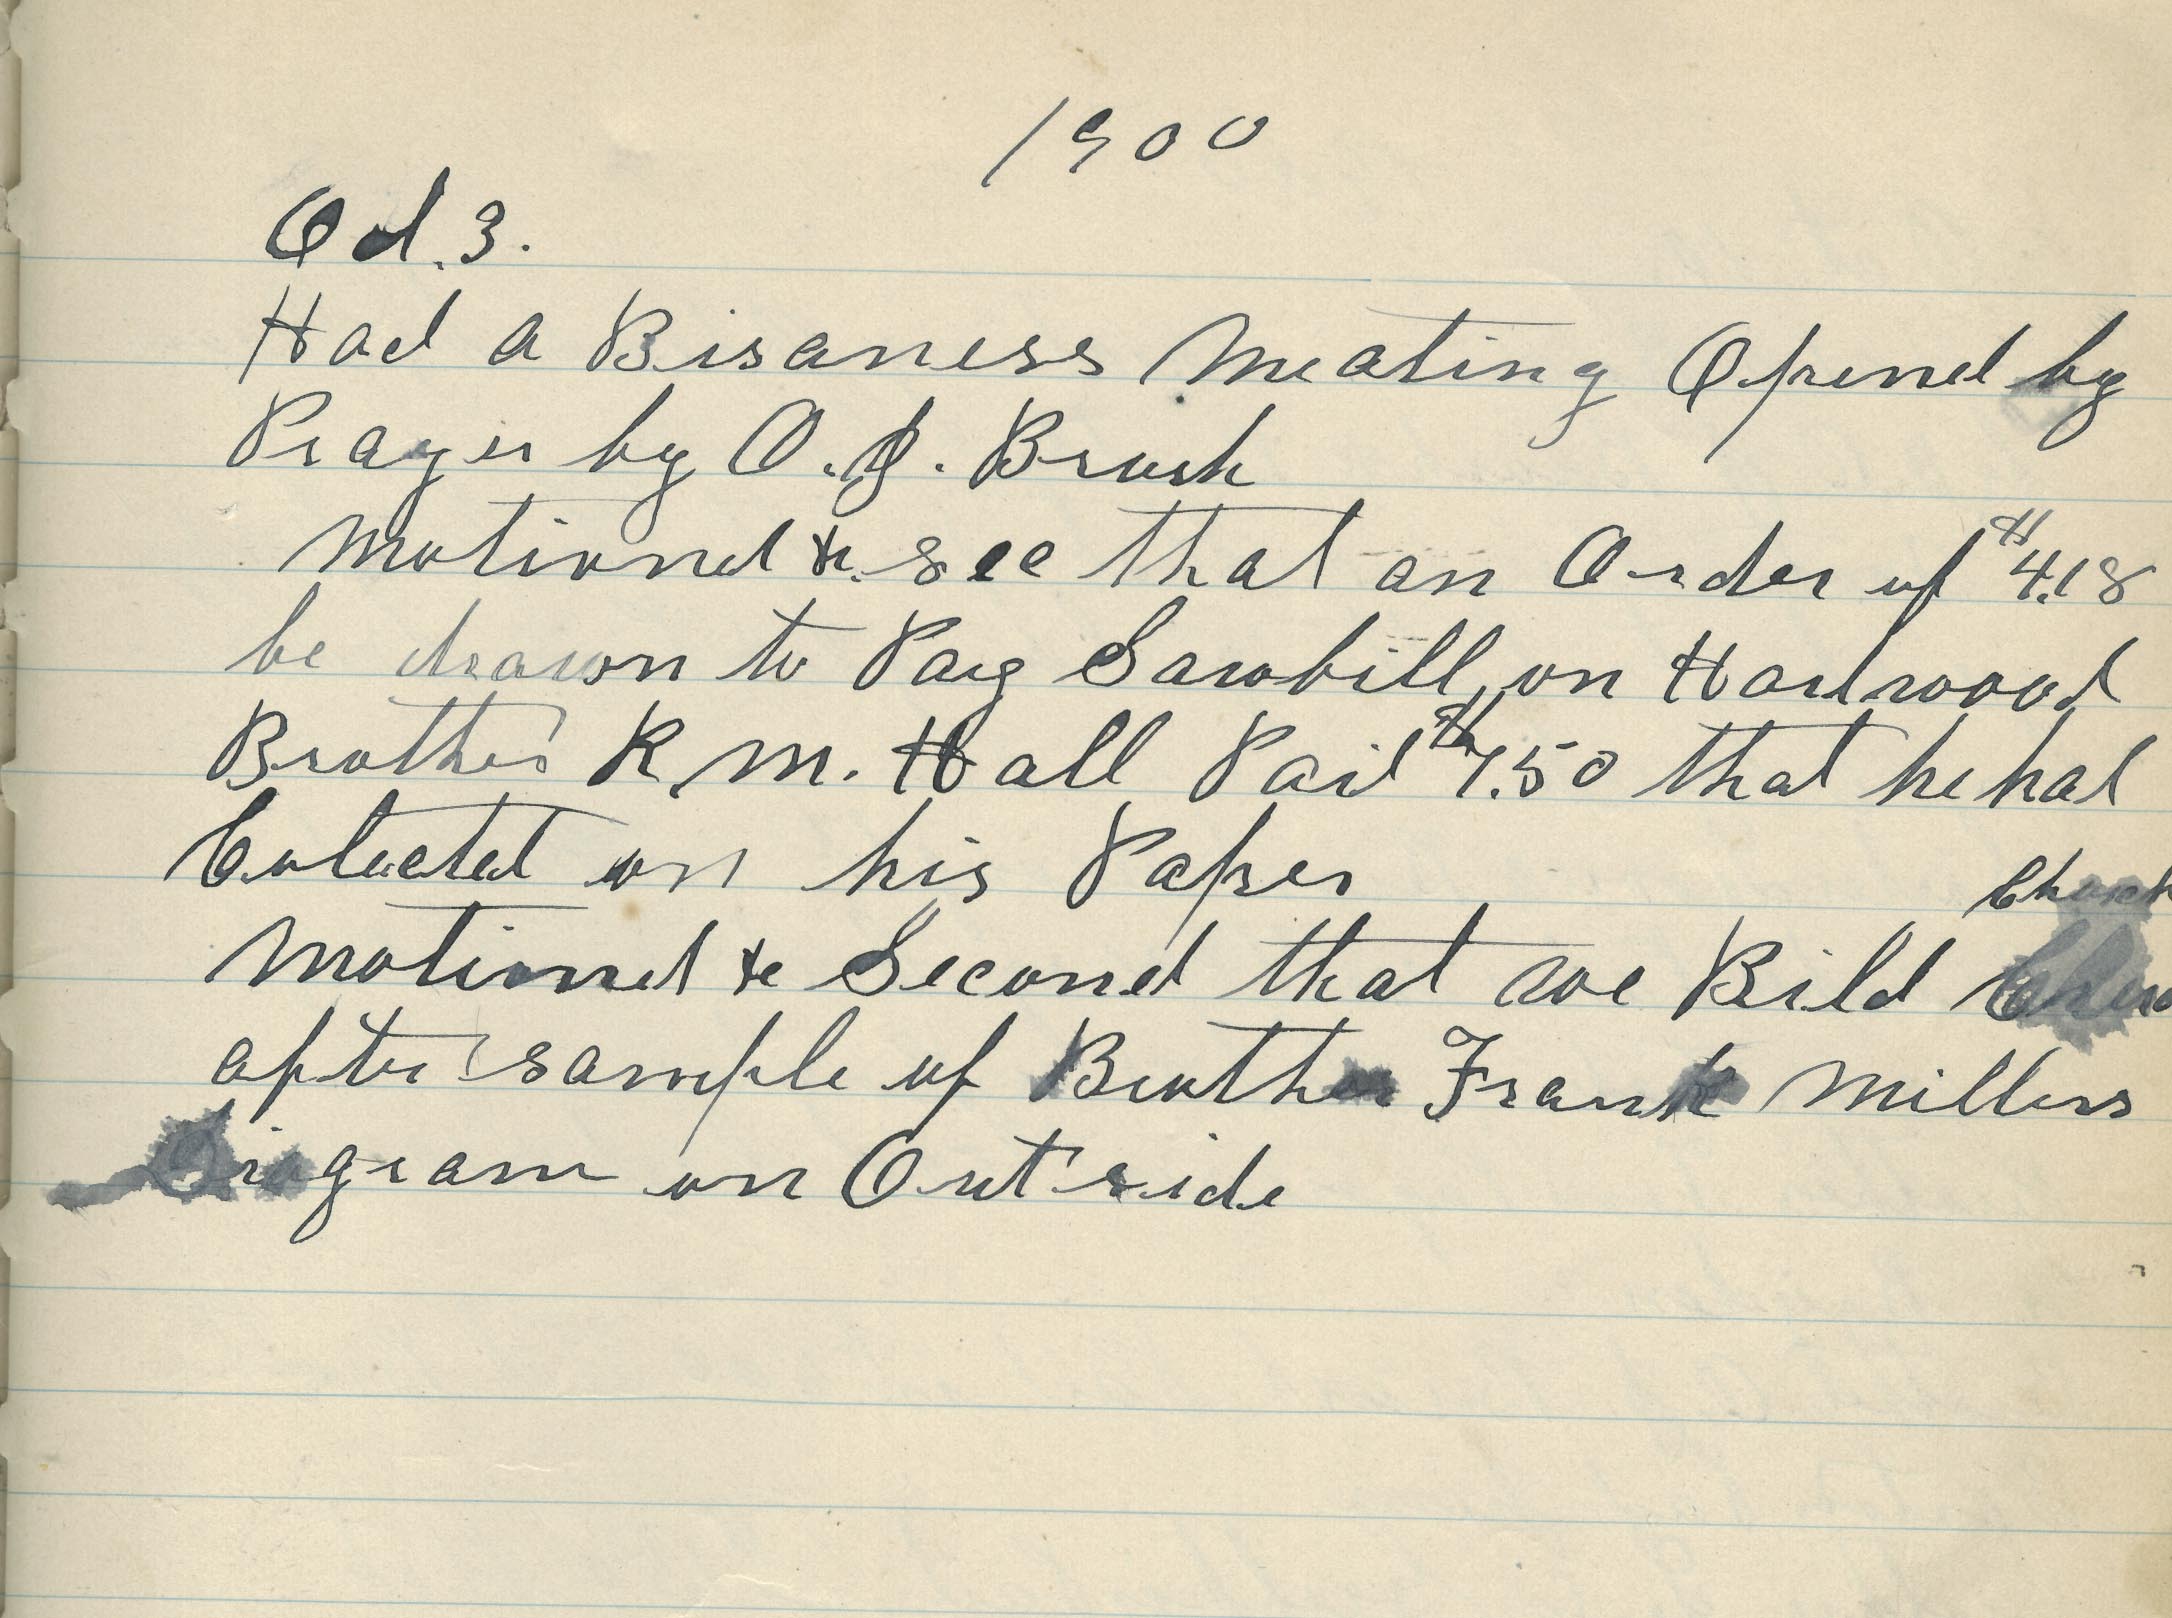 1900
Oct. 3.
Had a Bisaness Meating Opend by
Prayer by O. J. Brush
Motiond & see that an Order of $4.18
be drawn to Pay Sawbill on Hardwood
Brother R. M. Hall Paid $7.50 that he had
Colected on his Paper
Church
Motiond & Second that we Bild
after sample of Brother Frank Millers
Diagram on Outside